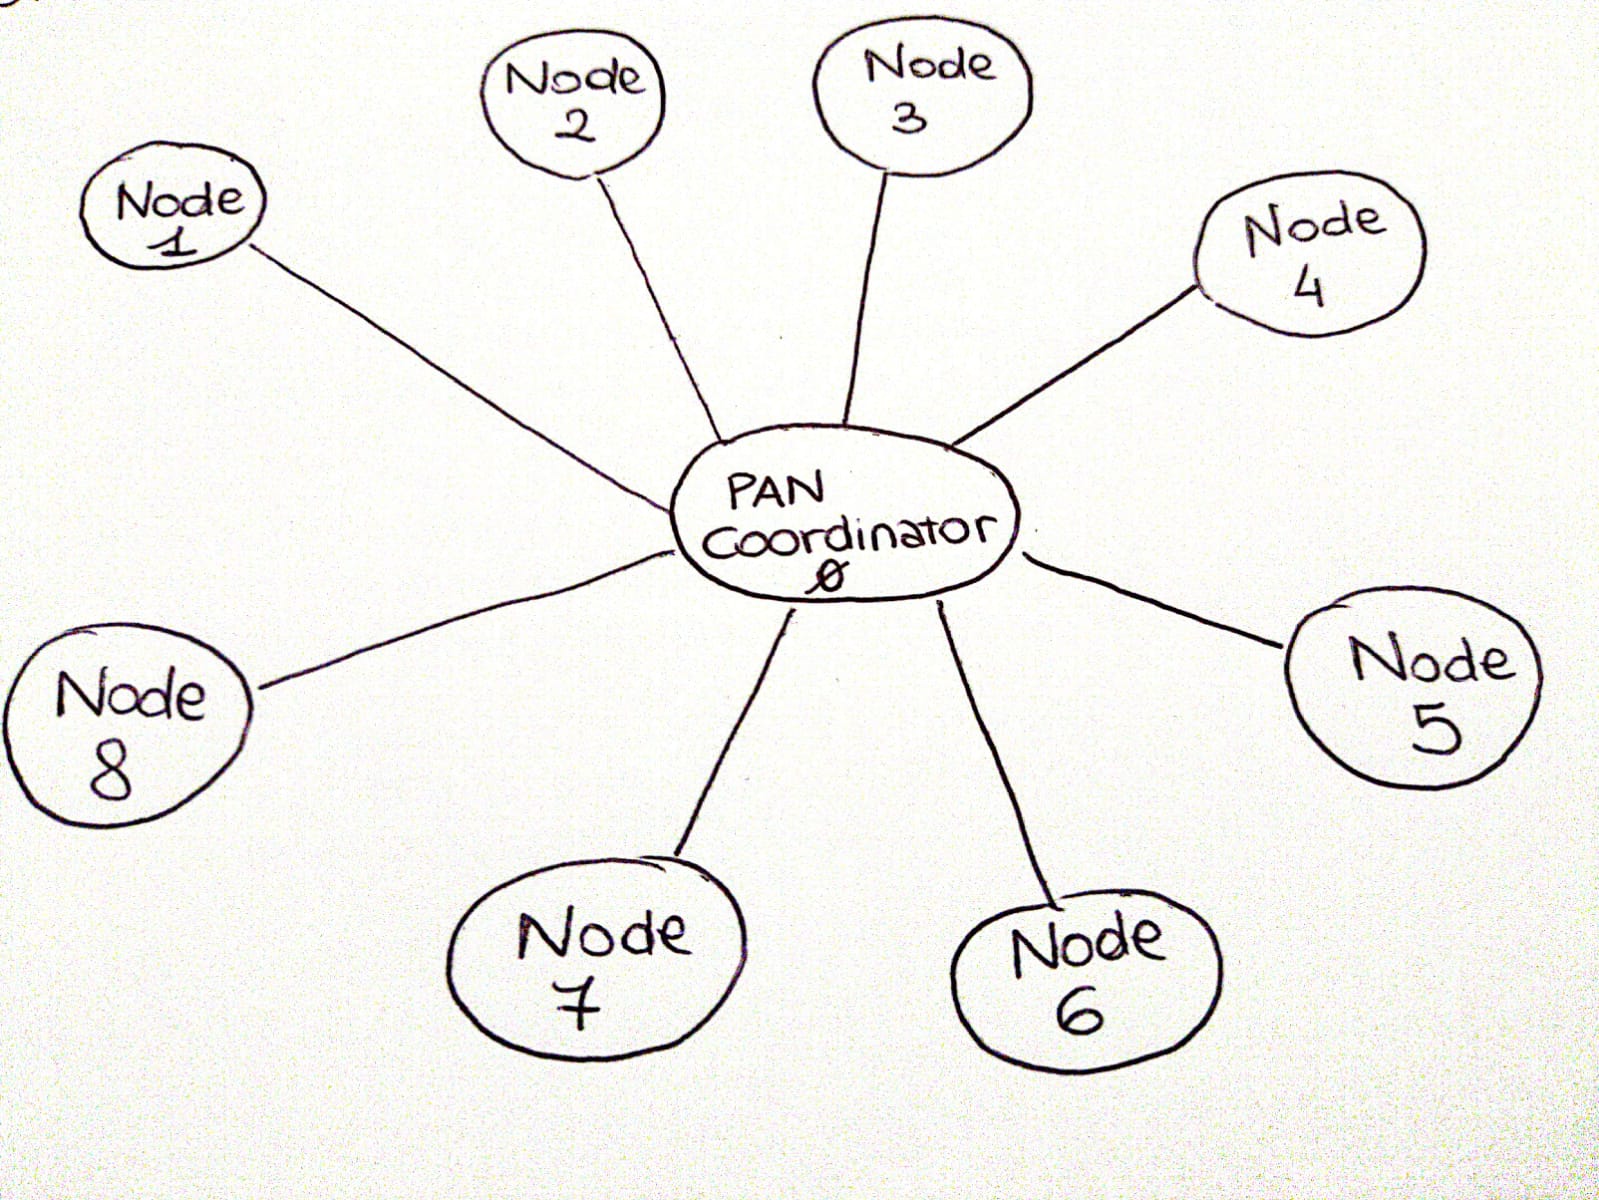 Node
1
Node
2
Node
3
Node
4
PAN
Coordinator
0
Node
5
Node
6
Node
7
Node
8